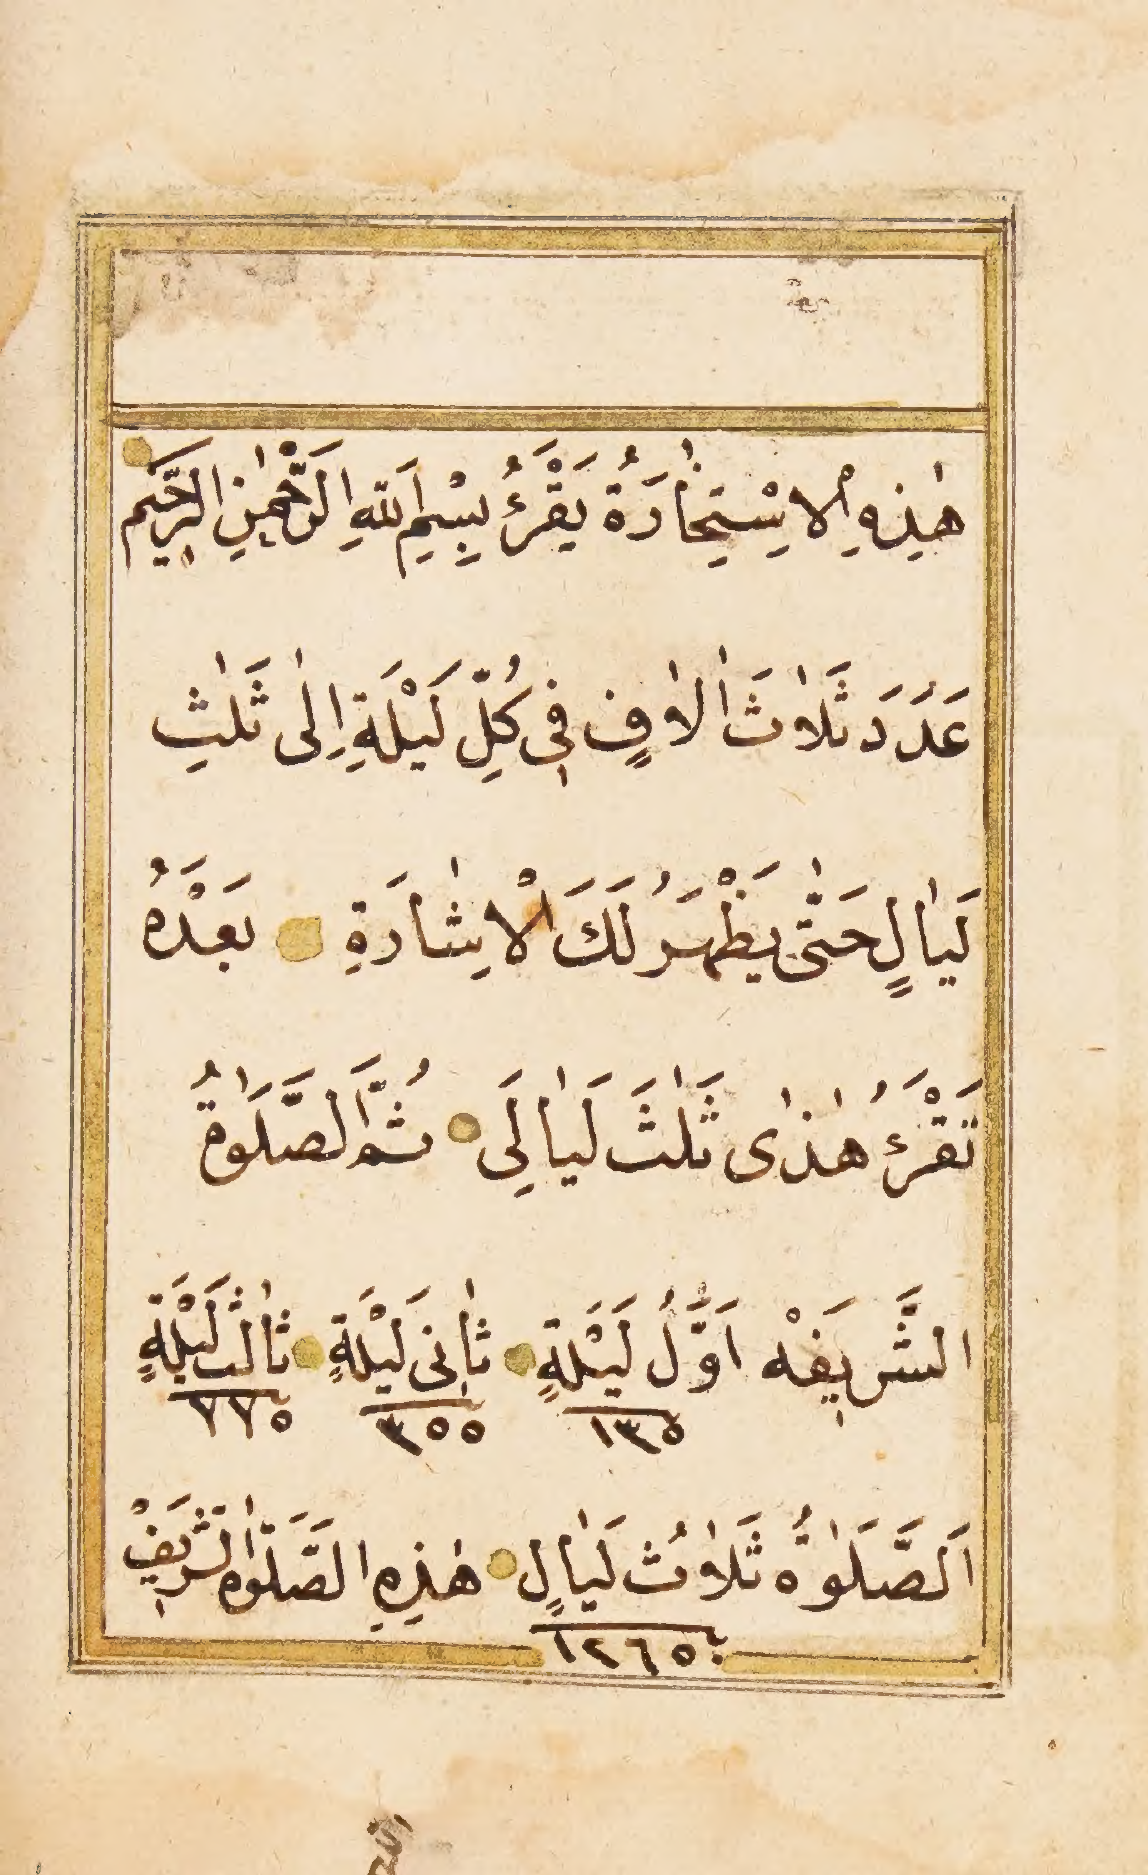 هٰذِهِ الْاِسْتِخٰارَةُ يَقْرَءُ بِسْمِ اللهِ الرَّحْمٰنِ الرَّحٖيمِ
عَدَدَ ثَلٰاثَ اٰلٰافٍ فٖى كُلِّ لَيْلَةِ اِلٰى ثَلٰثِ
لَيٰالٍ حَتّٰى يَظْهَرُ لَكَ الْاِشٰارَةِ بَعْدَهُ
تَقْرَءُ هٰذٰى ثَلٰثَ لَيٰالِىَ ثُمَّ الصَّلَوٰةُ
الشَّرٖيفَهْ اَوَّلُ لَيْلَةٍ ثٰانٖى لَيْلَةٍ ثٰالِثْ لَيْلَةٍ
١٣٥ ٣٥٥ ٧٧٥
اَلصَّلَوٰةُ ثَلٰاثُ لَيٰالٍ هٰذِهِ الصَّلَوٰةِ الشَّرٖيفَ
١٢٦٥